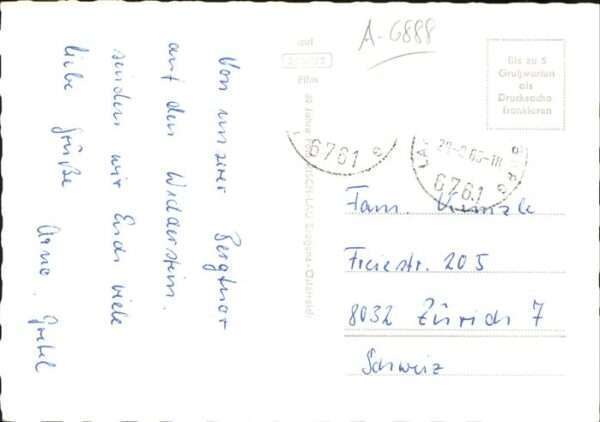 Von unserer Bergtour
auf den Widderstein
senden wir Euch viele
liebe Grüße
Arno. Gretel
auf
Film
A-6888
Bis zu 5
Grußworten
als
Drucksache
frankieren
6761
6761
Fam.
Freiestr. 205
8032 Zürich 7
Schweiz